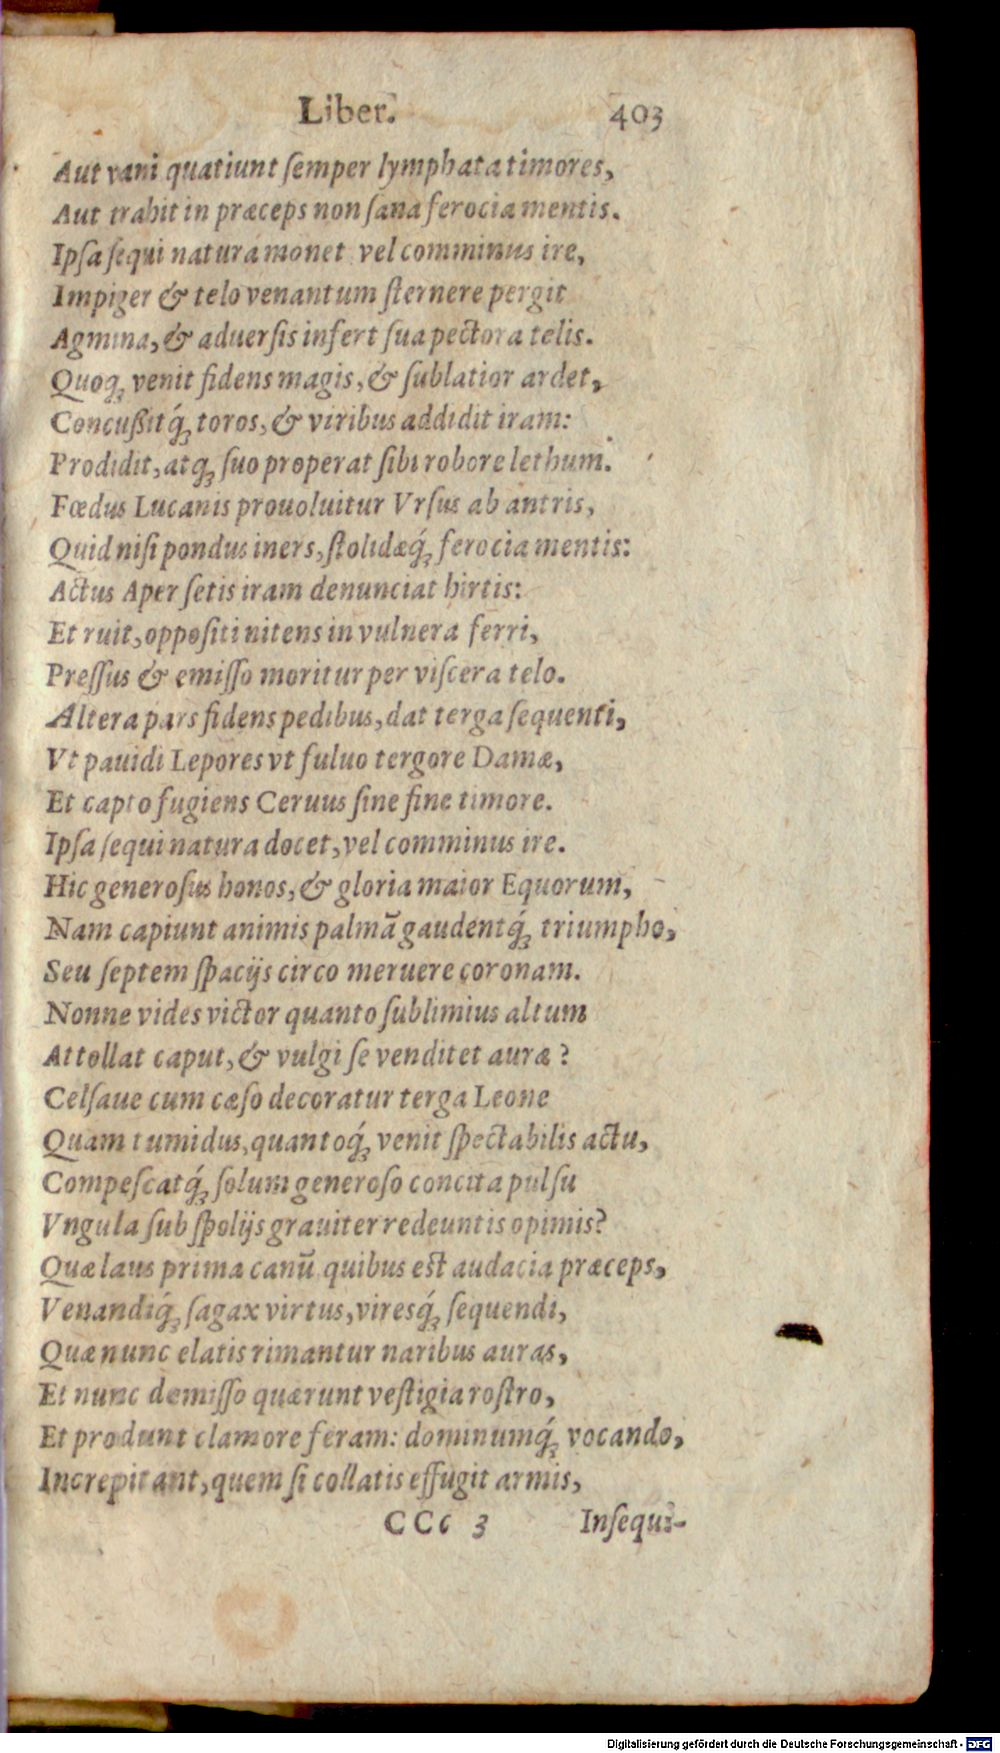 Liber. 403
Aut vani quatiunt ſemper lymphata timores,
Aut trahit in præceps non ſana ferocia mentis.
Ipſa ſequi natura monet vel comminus ire,
Impiger & telo venantum ſternere pergit
Agmina, & aduerſis infert ſua pectora telis.
Quoq́; venit fidens magis, & ſublatior ardet,
Concußitq́; toros, & viribus addidit iram:
Prodidit, atq; ſuo properat ſibi robore lethum.
Fœdus Lucanis prouoluitur Vrſus ab antris,
Quid niſi pondus iners, ſtolidæq́; ferocia mentis:
Actus Aper ſetis iram denunciat hirtis:
Et ruit, oppoſiti nitens in vulnera ferri,
Preſſus & emiſſo moritur per viſcera telo.
Altera pars fidens pedibus, dat terga ſequenti,
Vt pauidi Lepores vt fuluo tergore Damæ,
Et capto fugiens Ceruus ſine fine timore.
Ipſa ſequi natura docet, vel comminus ire.
Hic generoſus honos, & gloria maior Equorum,
Nam capiunt animis palmã gaudentq́; triumpho,
Seu ſeptem ſpacijs circo meruere coronam.
Nonne vides victor quanto ſublimius altum
Attollat caput, & vulgi ſe venditet auræ?
Celſaue cum cæſo decoratur terga Leone
Quam tumidus, quantoq́; venit ſpectabilis actu,
Compeſcatq́; ſolum generoſo concita pulſu
Vngula ſub ſpolijs grauiter redeuntis opimis?
Quæ laus prima canũ quibus eſt audacia præceps,
Venandiq́; ſagax virtus, viresq́; ſequendi,
Quæ nunc elatis rimantur naribus auras,
Et nunc demiſſo quærunt veſtigia roſtro,
Et produnt clamore feram: dominumq́; vocando,
Increpitant, quem ſi collatis effugit armis,
CCc 3 Inſequi-
Digitalisierung gefördert durch die Deutsche Forschungsgemeinschaft - DFG